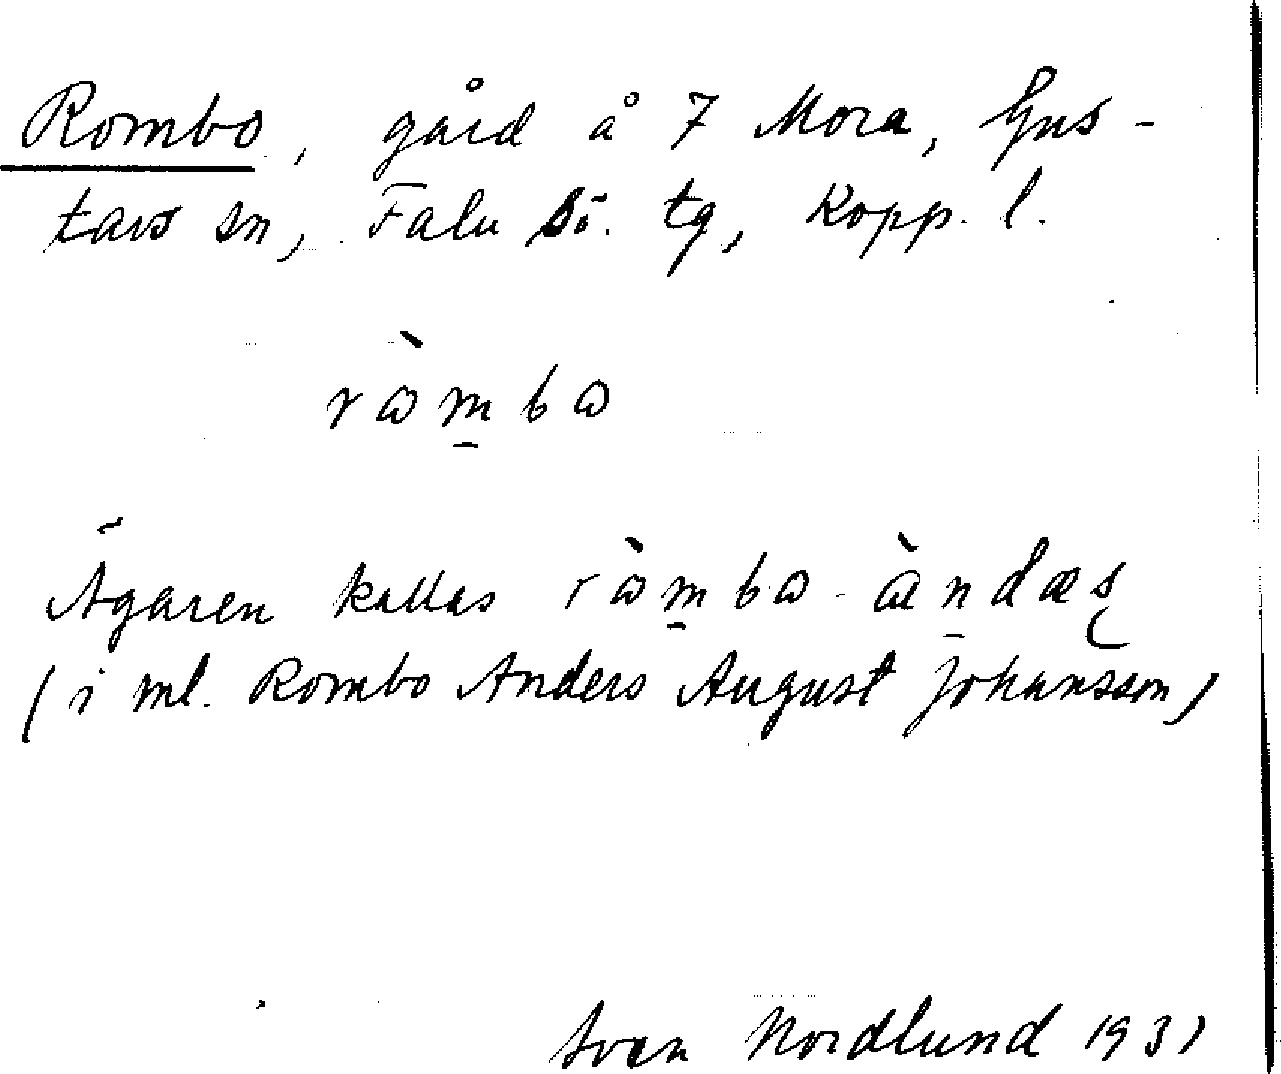 Rombo, gård å 7 Mora, Gus-
tavs sn, Falu Sö. tg, Kopp. l.
ròm̱bo
Ägaren kallas ròm̱bo-æ̀ṉdæs
(i ml. Rombo Anders August Johansson)
Sven Nordlund 1931